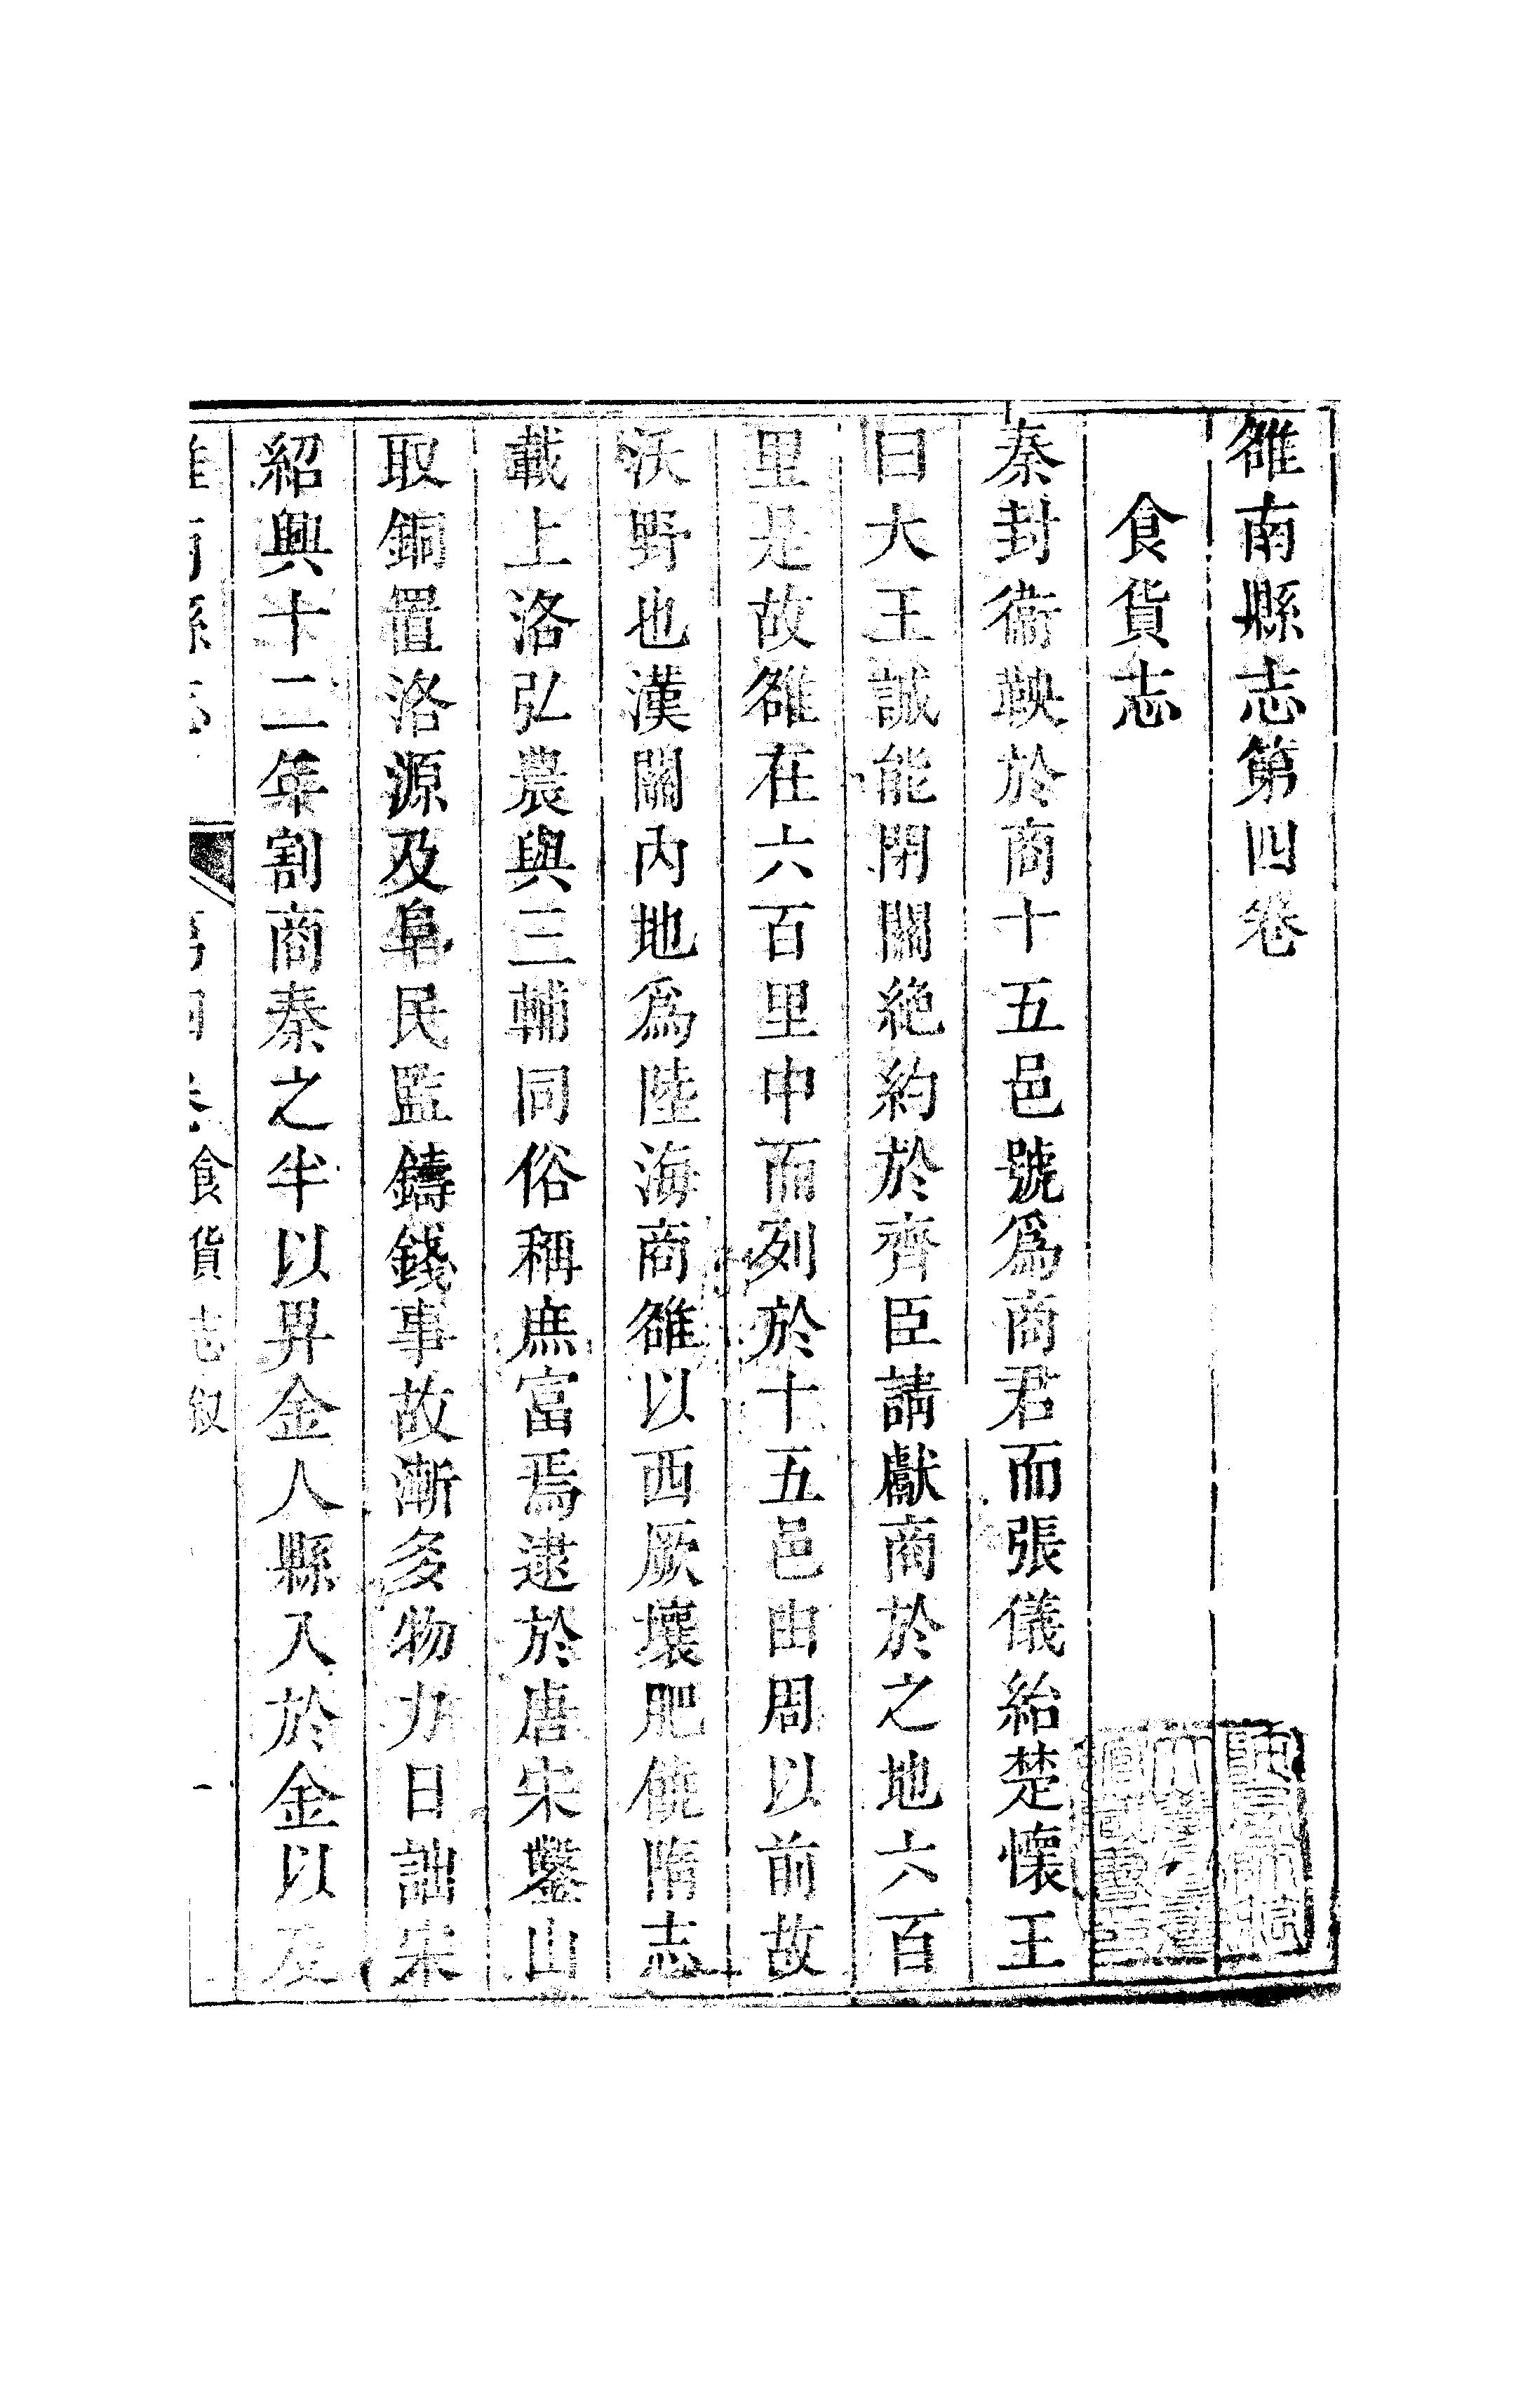 雒南縣志第四卷
食貨志
秦封衞鞅於商十五邑號爲商君而張儀紿楚懷王
曰大王誠能閉關絶約於齊臣請獻商於之地六百
里是故雒在六百里中而列於十五邑由周以前故
沃野也漢關内地爲陸海商雒以西厥壤肥饒隋志
載上洛弘農與三輔同俗稱庶富焉逮於唐宋鑿山
取銅置洛源及阜民監鑄錢事故漸多物力日詘宋
紹興十二年割商秦之半以畀金人縣入於金以及
雒南縣志 第四卷食貨志叙 一